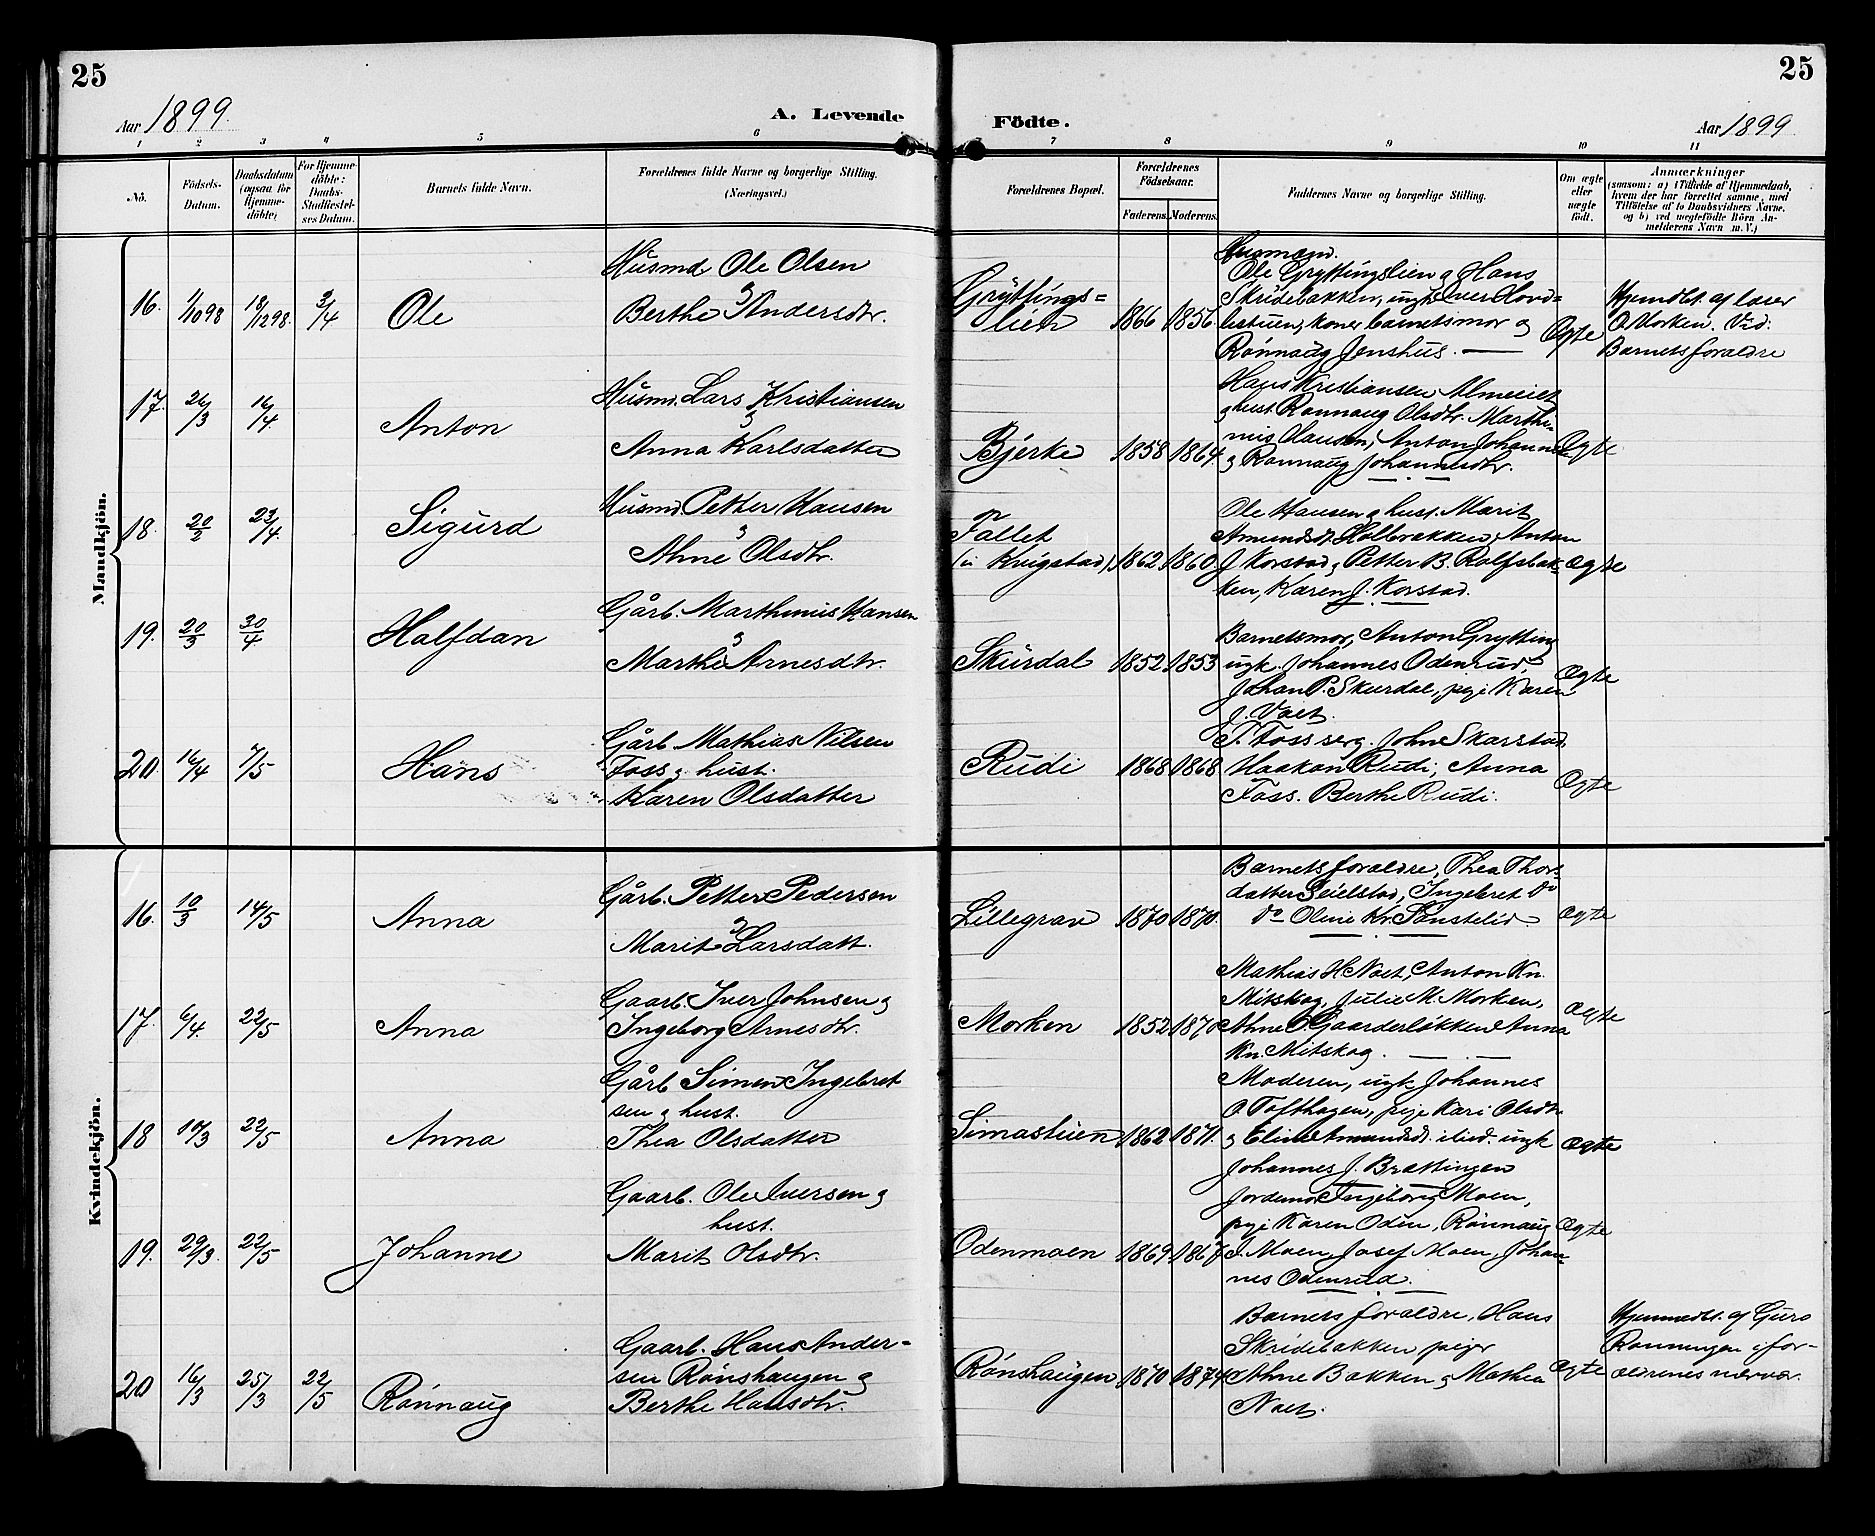 25
25
Aar 1899.
A. Levende
Födte.
Aar 1899
1 2 3 4 5 6 7 8 9 10 11
No.
Födsels-Datum.
Daabsdatum (ogsaa for Hjemme-döbte)
For Hjemme-döbte: Daabs-Stadfæstelses Datum.
Barnets fulde Navn.
Forældrenes fulde Navne og borgerlige Stilling. (Næringsvei.)
Forældrenes Bopæl.
Forældrenes Födselsaar.
Faderens. Moderens.
Faddernes Navne og borgerlige Stilling.
Om ægte eller uægte födt.
Anmærkninger
(saasom: a) i Tilfælde af Hjemmedaab,
hvem der har forrettet samme, med
Tilföielse af to Daabsvidners Navne,
og b) ved uægtefödte Börn An-
melderens Navn m. V.)
Mandkjön.
16. 1/10 98 18/12 98. 3/4 Ole
Husmd Ole Olsen
og
Berthe Andersdtr.
Gryttings=
lien 1866 1856
Husmænd.
Ole Gryttingslien og Hans
Skridebakken, ungk. Iver Hovde=
lestuen, koner barnetsmor og
Rønnaug Jenshus. Ægte
Hjemdbt. af læser
O Morken. Vid:
Barnets forældre
17. 26/3 16/4 Anton
Husmd. Lars Kristiansen
og
Anna Karlsdatter
Bjerke 1858 1864
Hans Kristiansen Almeiet
og hust. Rønnaug Olsdtr. Marthi-
nus Hansen, Anton Johannes
og Rønnaug Johannesdtr. Ægte
18. 20/2 23/4 Sigurd
Husmd. Petter Hansen
og
Ahne Olsdtr.
Fallet
(u Krigstad) 1862 1860
Ole Hansen og hust. Marit
Amundsdt. Holbrækken, Anton
J Korstad, Petter B. Rolfsbak-
ken, Karen J. Korstad. Ægte
19. 20/3 30/4 Halfdan
Gårb. Marthinus Hansen
og
Marthe Arnesdtr.
Skurdal 1852 1853
Barnetsmor, Anton Grytting
ungk. Johannes Odenrud,
Johan P. Skurdal, pige Karen
J. Voet. Ægte
20. 16/4 7/5 Hans
Gårb. Mathias Nilsen
Foss og hust.
Karen Olsdatter
Rudi 1868 1868
T. Foss serg. Johne Skarstad,
Haakon Rudi, Anna
Foss. Berthe Rudi. Ægte
Kvindekjön.
16. 10/3 14/5 Anna
Gårb. Petter Pedersen
og
Marit Larsdatt.
Lillegrav 1870 1870.
Barnets forældre, Thea Thors-
datter Seielstad, Ingebret Do
Do Oline Kr. Sønstelid. Ægte
17. 6/4. 22/5 Anna
Gaarb. Iver Johnsen og
Ingeborg Arnesdtr.
Morken 1852 1870
Mathias H Noet, Anton Kn.
Mitskog, Julie M. Morken,
Ahne O. Gaarderløkken Anna
Kn. Mitskog. Ægte
18 10/3 22/5 Anna
Gårb Simen Ingebret
sen og hust.
Thea Olsdatter
Simastuen 1862 1871.
Moderen, ungk Johannes
O. Tofthagen, pige Kari Olsdtr
og Eline Amundsdt. ilied. ungk
Johannes J. Brættingen Ægte
19. 29/3. 22/5 Johanne
Gaarb. Ole Iversen og
hust.
Marit Olsdtr.
Odenmoen 1869 1867
Jordemor Ingeborg Moen,
pige Karen Oden, Rønnaug
I. Moen, Josef Moen, Johan-
nes Odenrud. Ægte
20 16/3 25/3 22/5 Rønnaug
Gaarb. Hans Ander-
sen Rønshaugen og
Berthe Hansdtr.
Rønshaugen 1870 1874
Barnets forældre, Hans
Skridebakken piger
Ahne Bakken og Mathea
Noet. Ægte
Hjemmedbt. af Guro
Rønningen i for-
ældrenes nærvær.